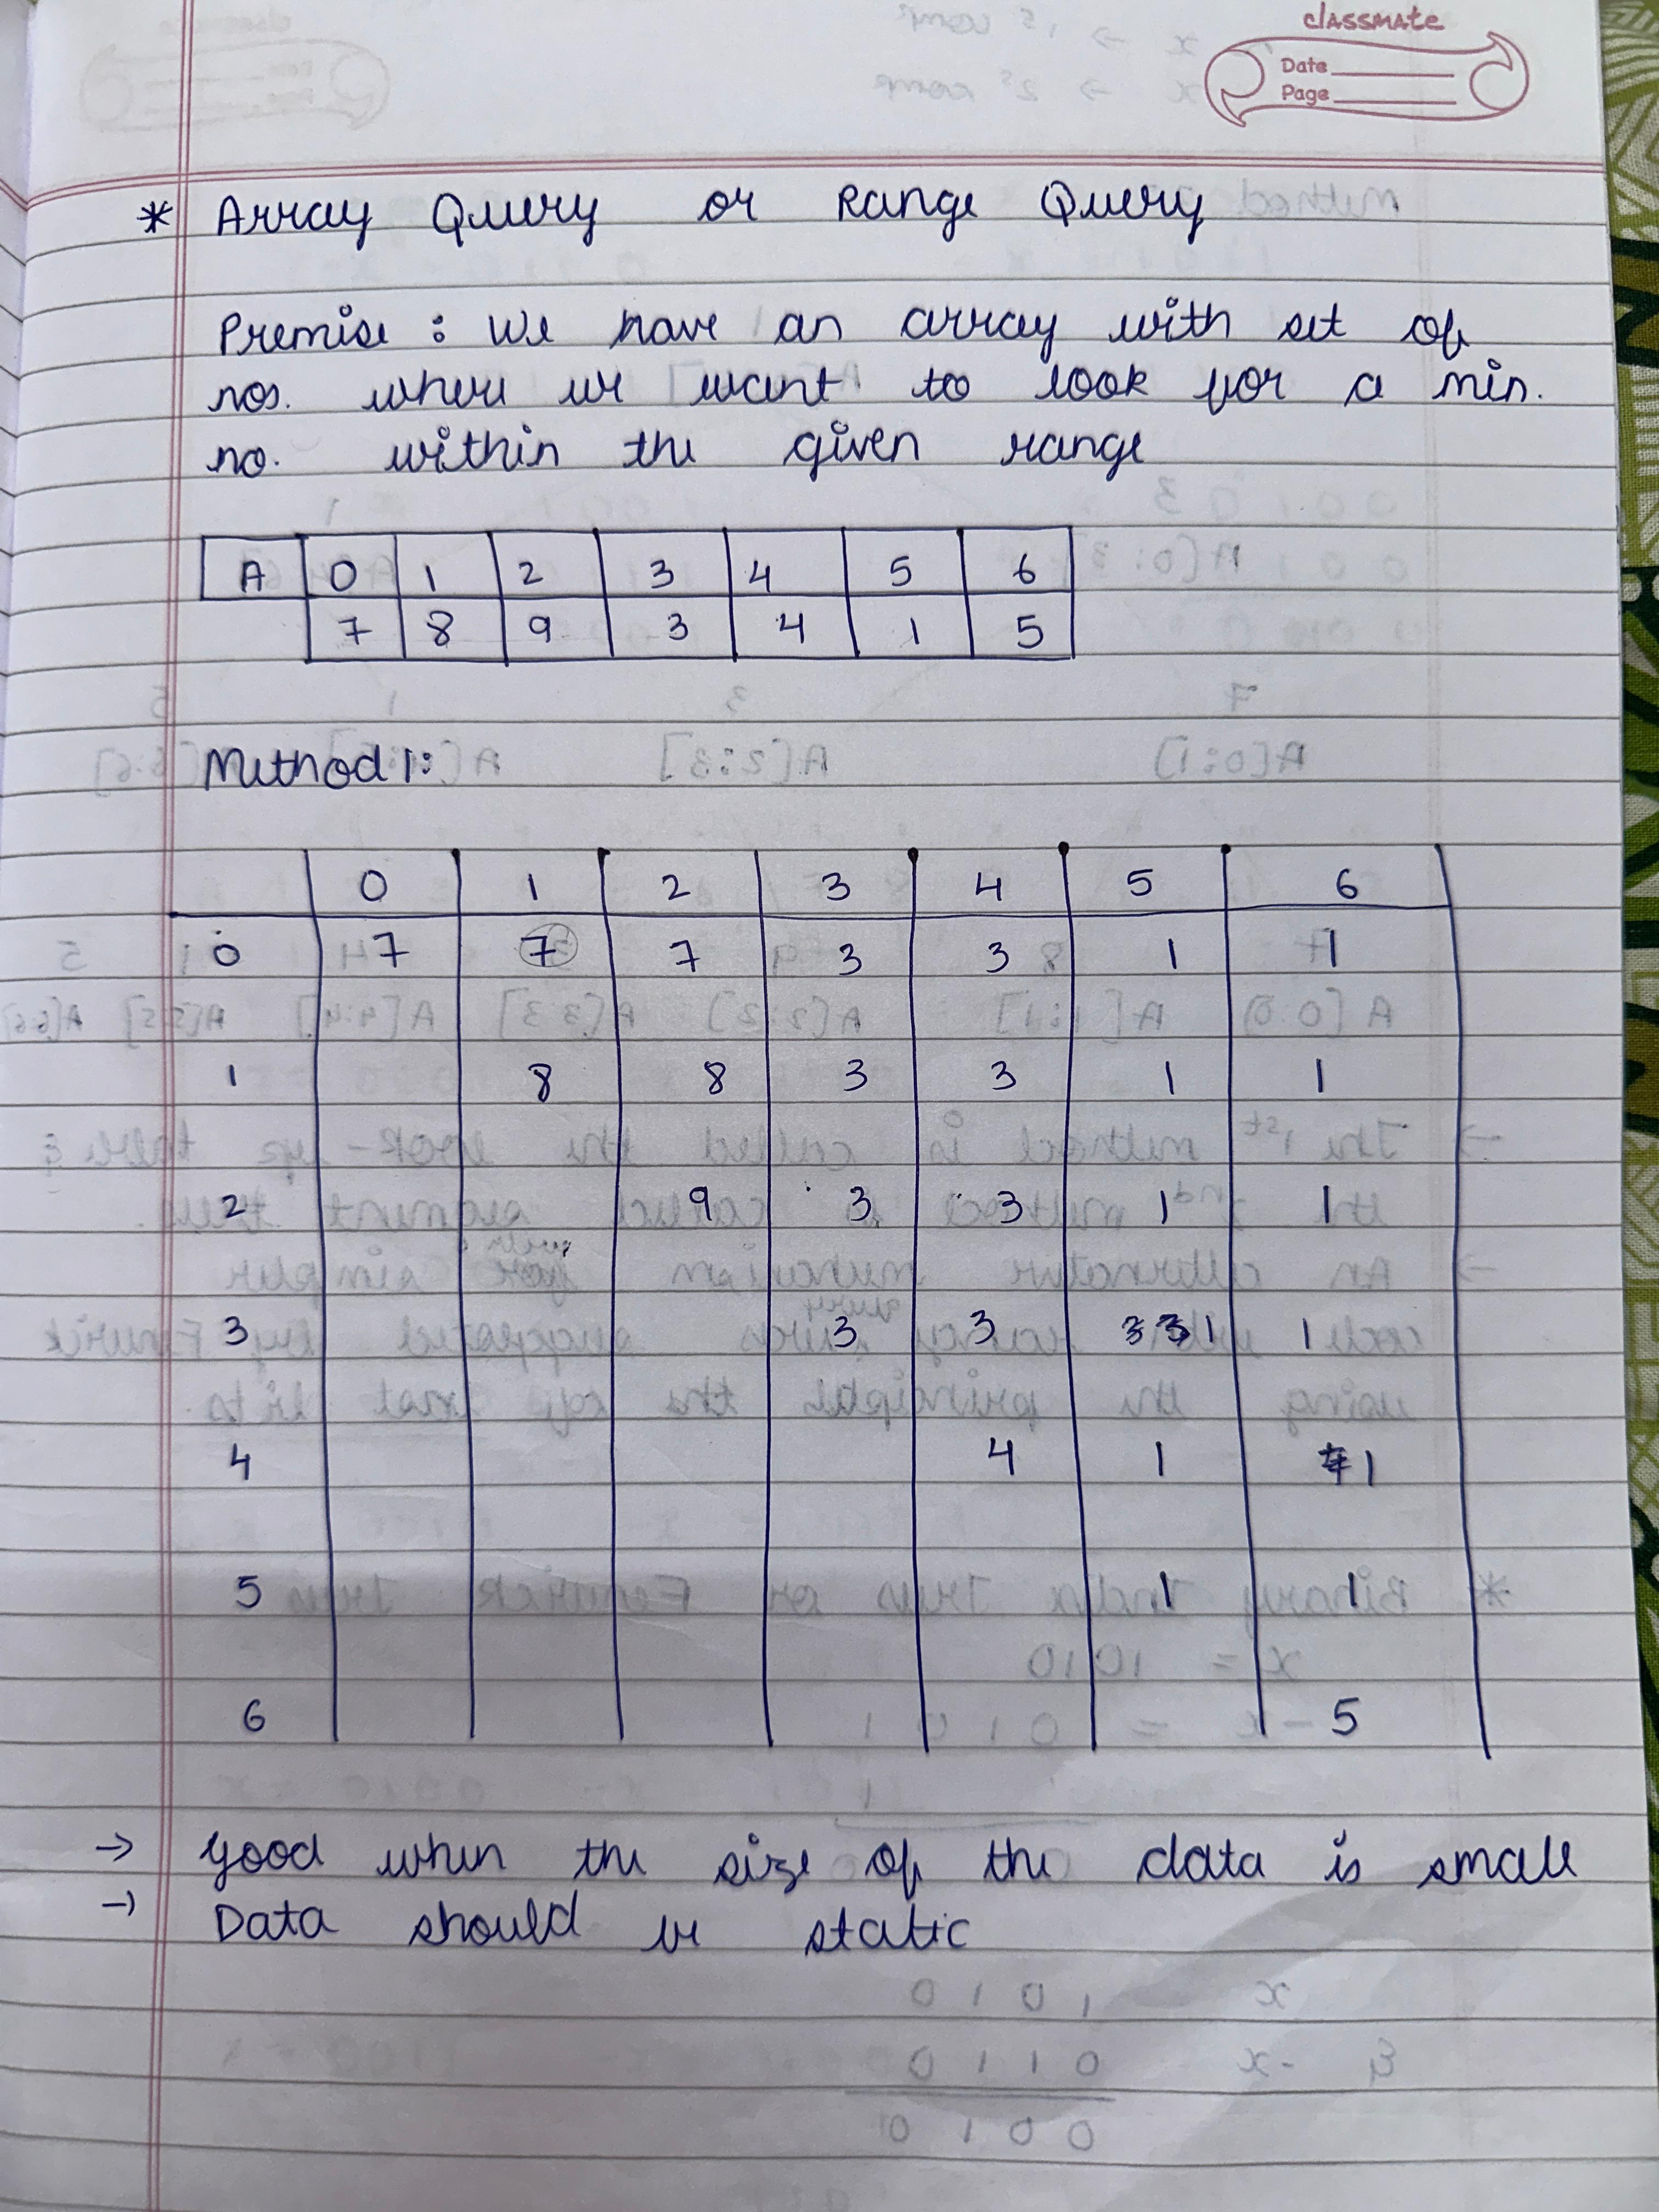 classmate
Date
Page
* Array Query or Range Query
Premise : We have an array with set of
nos. where we want to look for a min.
no. within the given range
A 0 1 2 3 4 5 6
7 8 9 3 4 1 5
Method 1:
0 1 2 3 4 5 6
0 7 7 7 3 3 1 1
1 8 8 3 3 1 1
2 9 3 3 1 1
3 3 3 1 1
4 4 1 1
5 1 1
6 5
→ Good when the size of the data is small
→ Data should be static